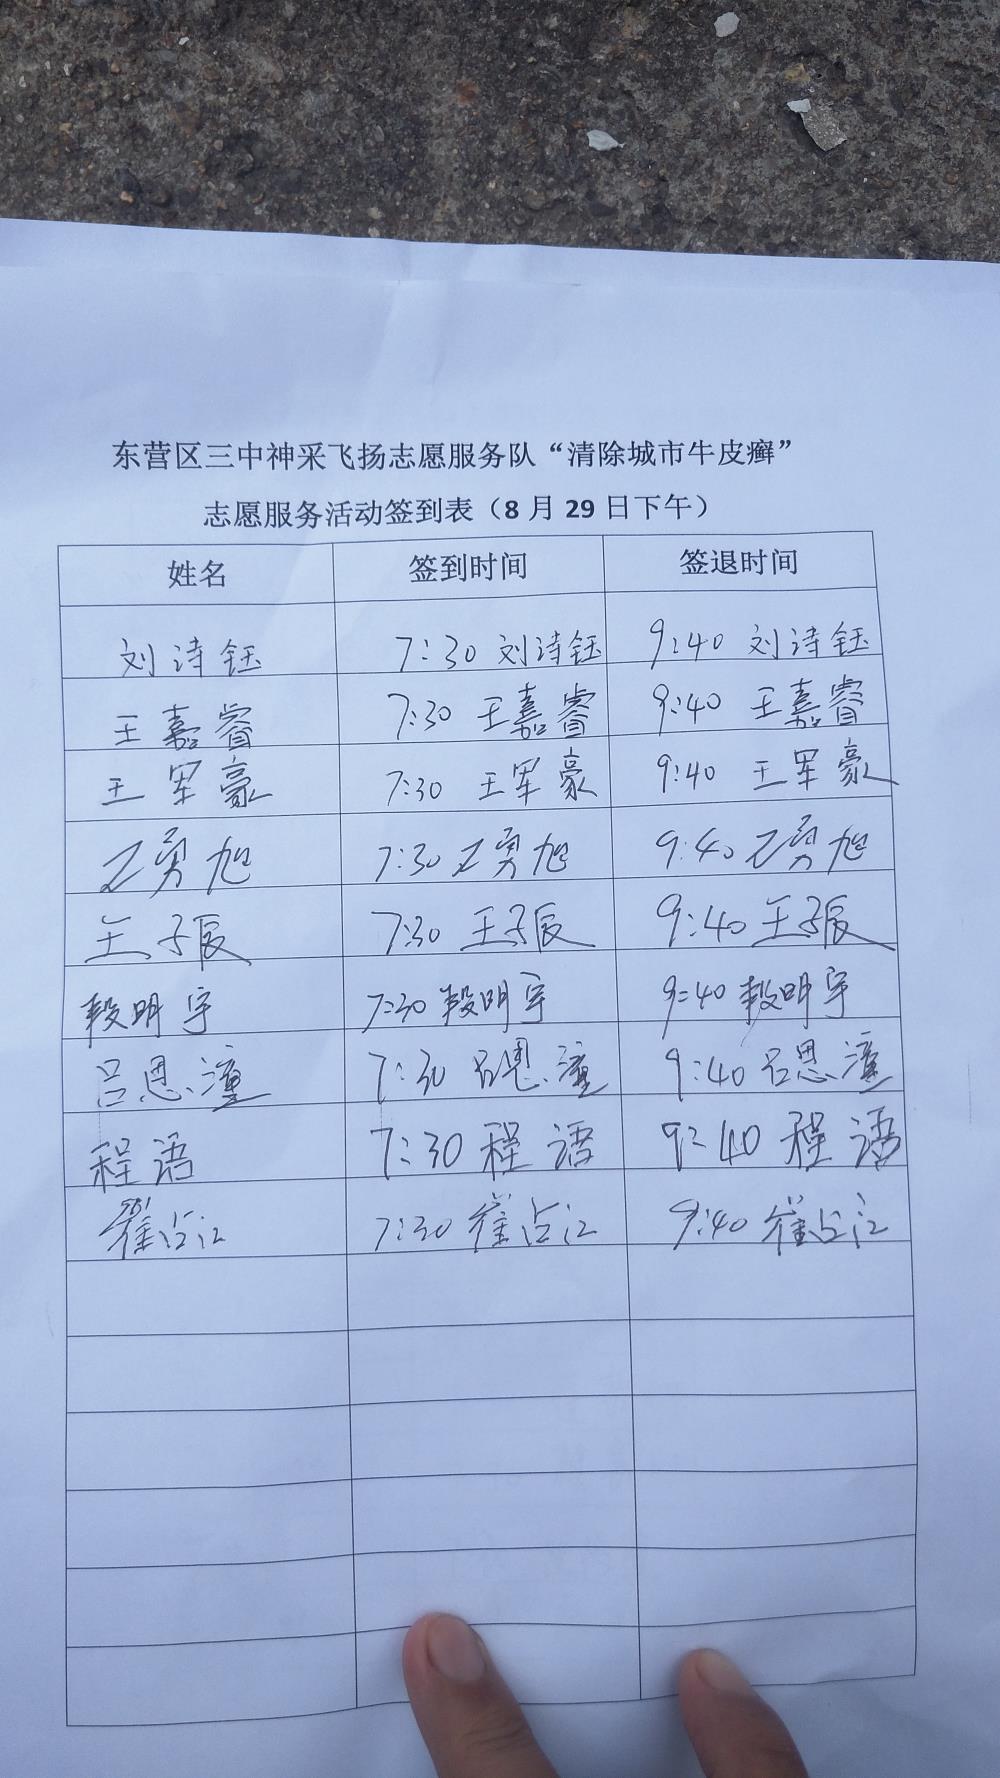 东营区三中神采飞扬志愿服务队“清除城市牛皮癣”
志愿服务活动签到表（8月29日下午）
姓名 签到时间 签退时间
刘诗钰 7:30 刘诗钰 9:40 刘诗钰
王嘉睿 7:30 王嘉睿 9:40 王嘉睿
王军豪 7:30 王军豪 9:40 王军豪
王勇旭 7:30 王勇旭 9:40 王勇旭
王子辰 7:30 王子辰 9:40 王子辰
段明宇 7:30 段明宇 9:40 段明宇
吕恩潼 7:30 吕恩潼 9:40 吕恩潼
程语 7:30 程语 9:40 程语
崔占江 7:30 崔占江 9:40 崔占江